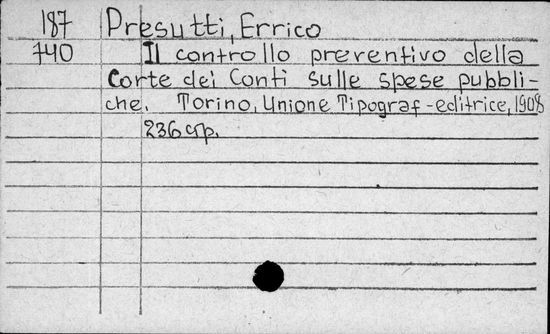 187 Presutti, Errico
740 Il controllo preventivo della
Corte dei Conti sulle spese pubbli-
che. Torino, Unione Tipograf-editrice, 1908
236 p.